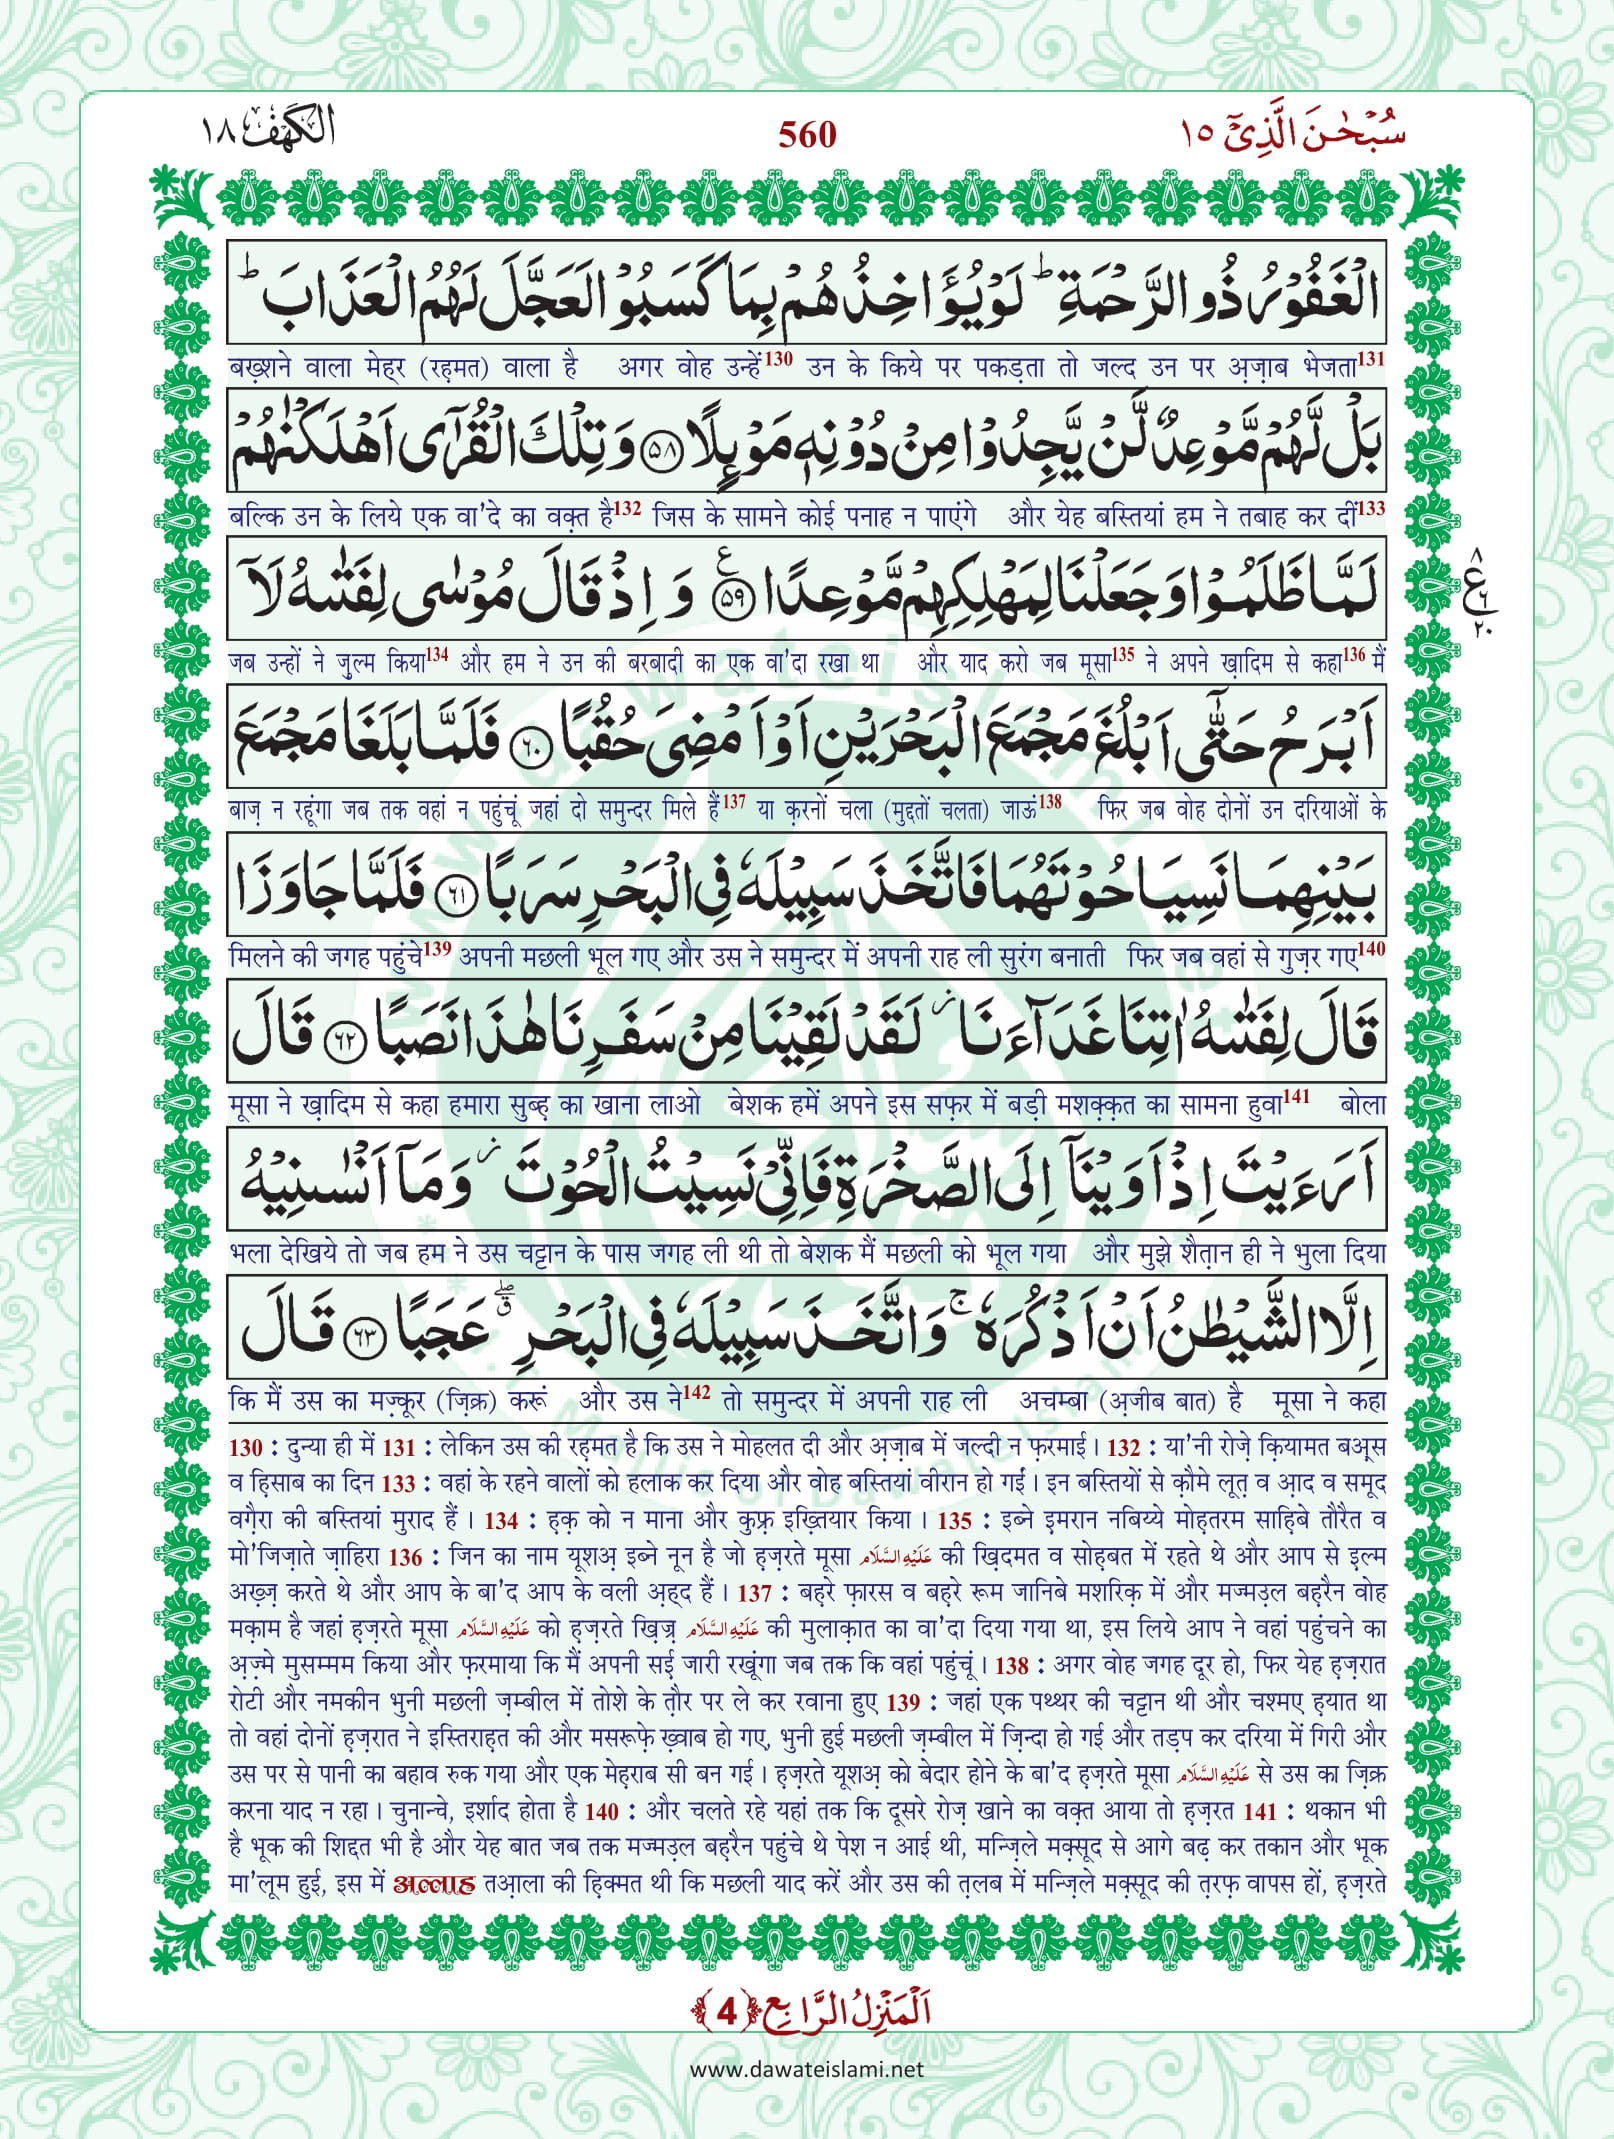 الکہف ١٨ 560 سُبْحٰنَ الَّذِىْٓ ١٥
الْغَفُوْرُ ذُو الرَّحْمَةِ ؕ لَوْ يُؤَاخِذُهُمْ بِمَا كَسَبُوْا لَعَجَّلَ لَهُمُ الْعَذَابَ ؕ
बख़्शने वाला मेह्र (रह़मत) वाला है अगर वोह उन्हें130 उन के किये पर पकड़ता तो जल्द उन पर अ़ज़ाब भेजता131
بَلْ لَّهُمْ مَّوْعِدٌ لَّنْ يَّجِدُوْا مِنْ دُوْنِهٖ مَوْىِٕلًا ﴿۵۸﴾ وَ تِلْكَ الْقُرٰۤى اَهْلَكْنٰهُمْ
बल्कि उन के लिये एक वा'दे का वक़्त है132 जिस के सामने कोई पनाह न पाएंगे और येह बस्तियां हम ने तबाह कर दीं133
لَمَّا ظَلَمُوْا وَ جَعَلْنَا لِمَهْلِكِهِمْ مَّوْعِدًا ﴿۵۹﴾ ع وَ اِذْ قَالَ مُوْسٰى لِفَتٰىهُ لَاۤ
٨ ع ٦ ٢٠
जब उन्हों ने ज़ुल्म किया134 और हम ने उन की बरबादी का एक वा'दा रखा था और याद करो जब मूसा135 ने अपने ख़ादिम से कहा136 मैं
اَبْرَحُ حَتّٰۤى اَبْلُغَ مَجْمَعَ الْبَحْرَيْنِ اَوْ اَمْضِىَ حُقُبًا ﴿۶۰﴾ فَلَمَّا بَلَغَا مَجْمَعَ
बाज़ न रहूंगा जब तक वहां न पहुंचूं जहां दो समुन्दर मिले हैं137 या क़रनों चला (मुद्दतों चलता) जाऊं138 फिर जब वोह दोनों उन दरियाओं के
بَيْنِهِمَا نَسِيَا حُوْتَهُمَا فَاتَّخَذَ سَبِيْلَهٗ فِى الْبَحْرِ سَرَبًا ﴿۶۱﴾ فَلَمَّا جَاوَزَا
मिलने की जगह पहुंचे139 अपनी मछली भूल गए और उस ने समुन्दर में अपनी राह ली सुरंग बनाती फिर जब वहां से गुज़र गए140
قَالَ لِفَتٰىهُ اٰتِنَا غَدَآءَنَا ز لَقَدْ لَقِيْنَا مِنْ سَفَرِنَا هٰذَا نَصَبًا ﴿۶۲﴾ قَالَ
मूसा ने ख़ादिम से कहा हमारा सुब्ह़ का खाना लाओ बेशक हमें अपने इस सफ़र में बड़ी मशक़्क़त का सामना हुवा141 बोला
اَرَءَيْتَ اِذْ اَوَيْنَاۤ اِلَى الصَّخْرَةِ فَاِنِّىْ نَسِيْتُ الْحُوْتَ ز وَ مَاۤ اَنْسٰىنِيْهُ
भला देखिये तो जब हम ने उस चट्टान के पास जगह ली थी तो बेशक मैं मछली को भूल गया और मुझे शैत़ान ही ने भुला दिया
اِلَّا الشَّيْطٰنُ اَنْ اَذْكُرَهٗ ج وَ اتَّخَذَ سَبِيْلَهٗ فِى الْبَحْرِ ۖق عَجَبًا ﴿۶۳﴾ قَالَ
कि मैं उस का मज़्कूर (ज़िक्र) करूं और उस ने142 तो समुन्दर में अपनी राह ली अचम्बा (अ़जीब बात) है मूसा ने कहा
130 : दुन्या ही में 131 : लेकिन उस की रह़मत है कि उस ने मोहलत दी और अ़ज़ाब में जल्दी न फ़रमाई। 132 : या'नी रोज़े क़ियामत बअ़्स
व ह़िसाब का दिन 133 : वहां के रहने वालों को हलाक कर दिया और वोह बस्तियां वीरान हो गईं। इन बस्तियों से क़ौमे लूत़ व आ़द व समूद
वग़ैरा की बस्तियां मुराद हैं। 134 : ह़क़ को न माना और कुफ़्र इख़्तियार किया। 135 : इब्ने इमरान नबिय्ये मोह़तरम साह़िबे तौरैत व
मो'जिज़ाते ज़ाहिरा 136 : जिन का नाम यूशअ़ इब्ने नून है जो ह़ज़रते मूसा عَلَيْهِ السَّلَام की ख़िदमत व सोह़बत में रहते थे और आप से इ़ल्म
अख़्ज़ करते थे और आप के बा'द आप के वली अ़ह्द हैं। 137 : बह़रे फ़ारस व बह़रे रूम जानिबे मशरिक़ में और मज्मउ़ल बह़रैन वोह
मक़ाम है जहां ह़ज़रते मूसा عَلَيْهِ السَّلَام को ह़ज़रते ख़िज़्र عَلَيْهِ السَّلَام की मुलाक़ात का वा'दा दिया गया था, इस लिये आप ने वहां पहुंचने का
अ़ज़्मे मुसम्मम किया और फ़रमाया कि मैं अपनी सई जारी रखूंगा जब तक कि वहां पहुंचूं। 138 : अगर वोह जगह दूर हो, फिर येह ह़ज़रात
रोटी और नमकीन भुनी मछली ज़म्बील में तोशे के त़ौर पर ले कर रवाना हुए 139 : जहां एक पथ्थर की चट्टान थी और चश्मए ह़यात था
तो वहां दोनों ह़ज़रात ने इस्तिराह़त की और मसरूफ़े ख़्वाब हो गए, भुनी हुई मछली ज़म्बील में ज़िन्दा हो गई और तड़प कर दरिया में गिरी और
उस पर से पानी का बहाव रुक गया और एक मेह़राब सी बन गई। ह़ज़रते यूशअ़ को बेदार होने के बा'द ह़ज़रते मूसा عَلَيْهِ السَّلَام से उस का ज़िक्र
करना याद न रहा। चुनान्चे, इर्शाद होता है 140 : और चलते रहे यहां तक कि दूसरे रोज़ खाने का वक़्त आया तो ह़ज़रत 141 : थकान भी
है भूक की शिद्दत भी है और येह बात जब तक मज्मउ़ल बह़रैन पहुंचे थे पेश न आई थी, मन्ज़िले मक़्सूद से आगे बढ़ कर तकान और भूक
मा'लूम हुई, इस में अल्लाह तआ़ला की ह़िक्मत थी कि मछली याद करें और उस की त़लब में मन्ज़िले मक़्सूद की त़रफ़ वापस हों, ह़ज़रते
اَلْمَنْزِلُ الرَّابِع ﴿4﴾
www.dawateislami.net